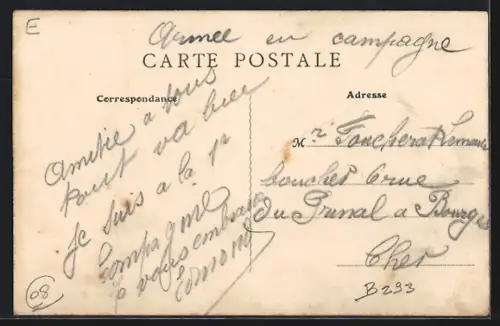 E
Armée en campagne
CARTE POSTALE
Correspondance
Adresse
Amitie a tous
tout va bien
Je suis a la 1r
Compagnie
Je vous embrasse
Edmond
Mr
boucher 6 rue
du Prinal a Bourges
Cher
08
B293